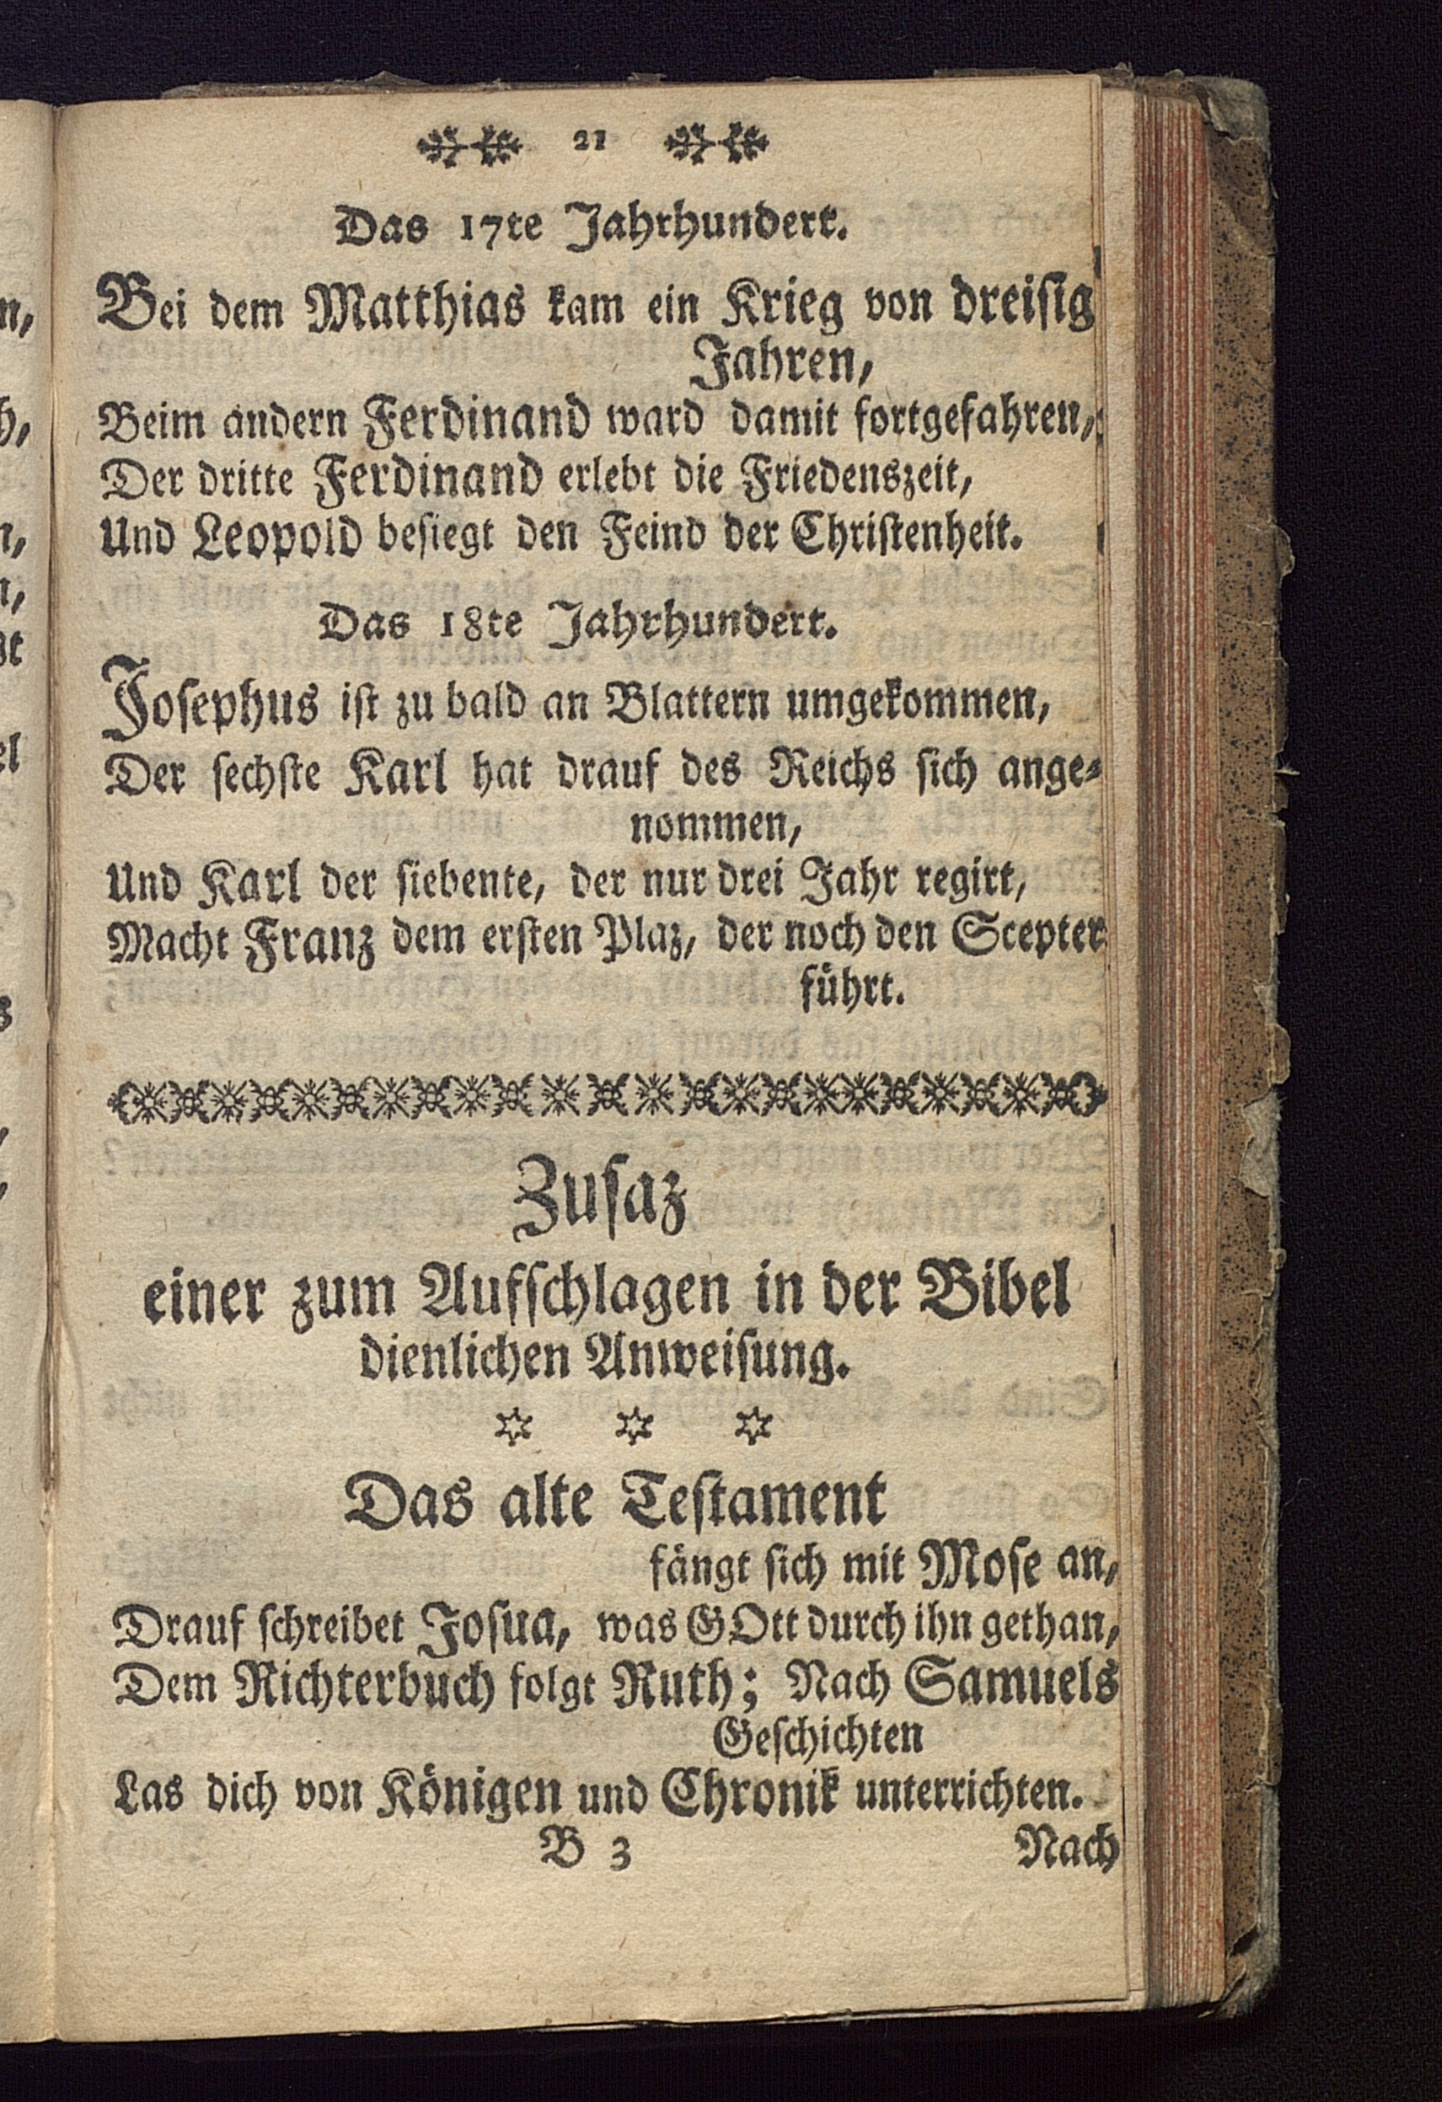 21
Das 17te Jahrhundert.
Bei dem Matthias kam ein Krieg von dreisig
Jahren,
Beim andern Ferdinand ward damit fortgefahren,
Der dritte Ferdinand erlebt die Friedenszeit,
Und Leopold besiegt den Feind der Christenheit.
Das 18te Jahrhundert.
Josephus ist zu bald an Blattern umgekommen,
Der sechste Karl hat drauf des Reichs sich ange-
nommen,
Und Karl der siebente, der nur drei Jahr regirt,
Macht Franz dem ersten Plaz, der noch den Scepter
führt.
Zusaz
einer zum Aufschlagen in der Bibel
dienlichen Anweisung.
Das alte Testament
fängt sich mit Mose an,
Drauf schreibet Josua, was GOtt durch ihn gethan,
Dem Richterbuch folgt Ruth; Nach Samuels
Geschichten
Las dich von Königen und Chronik unterrichten.
B 3
Nach